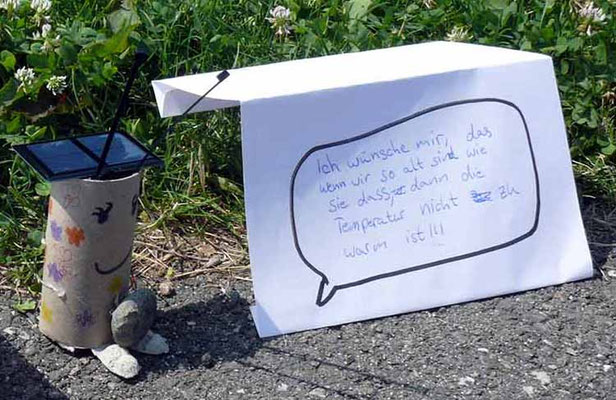 Ich wünsche mir, das
wenn wir so alt sind wie
sie dass, dann die
Temperatur nicht zu
warm ist!!!